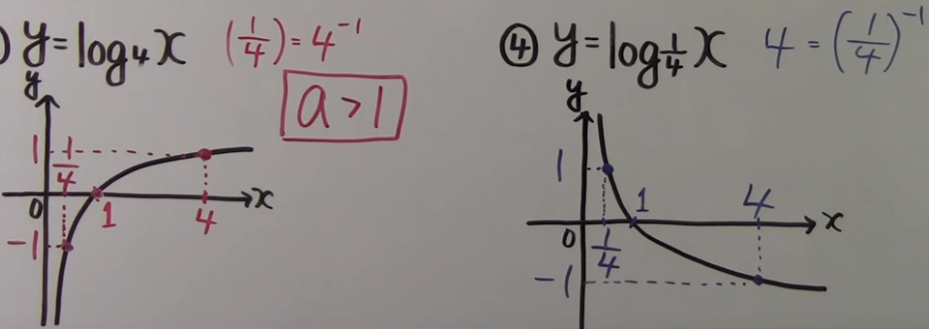 ) y=log₄x (1/4)=4⁻¹
a>1
y
1
1/4
0
1
4
x
-1
④ y=log_{1/4}x 4=(1/4)⁻¹
y
1
1
4
x
0
1/4
-1